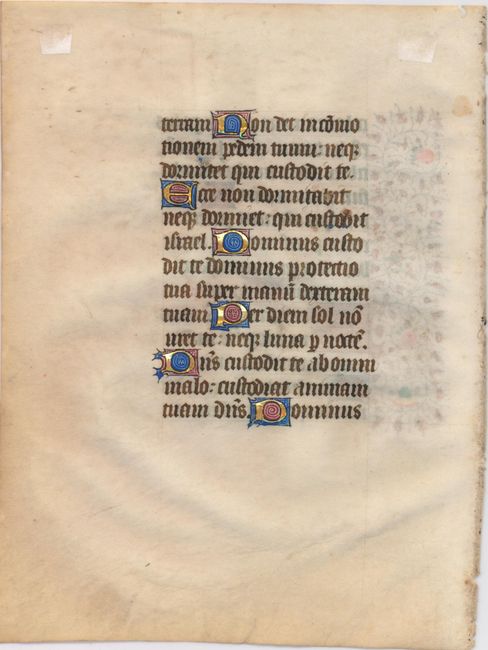 terram Non det in cōmo
tionem pedem tuum: neqꝫ
dormitet qui custodit te.
Ecce non dormitabit
neqꝫ dormiet: qui custodit
israel. Dominus custo
dit te dominus protectio
tua super manū dexteram
tuam Per diem sol nō
uret te: neqꝫ luna ꝑ noctē.
Dn̄s custodit te ab omni
malo: custodiat animam
tuam dn̄s. Dominus